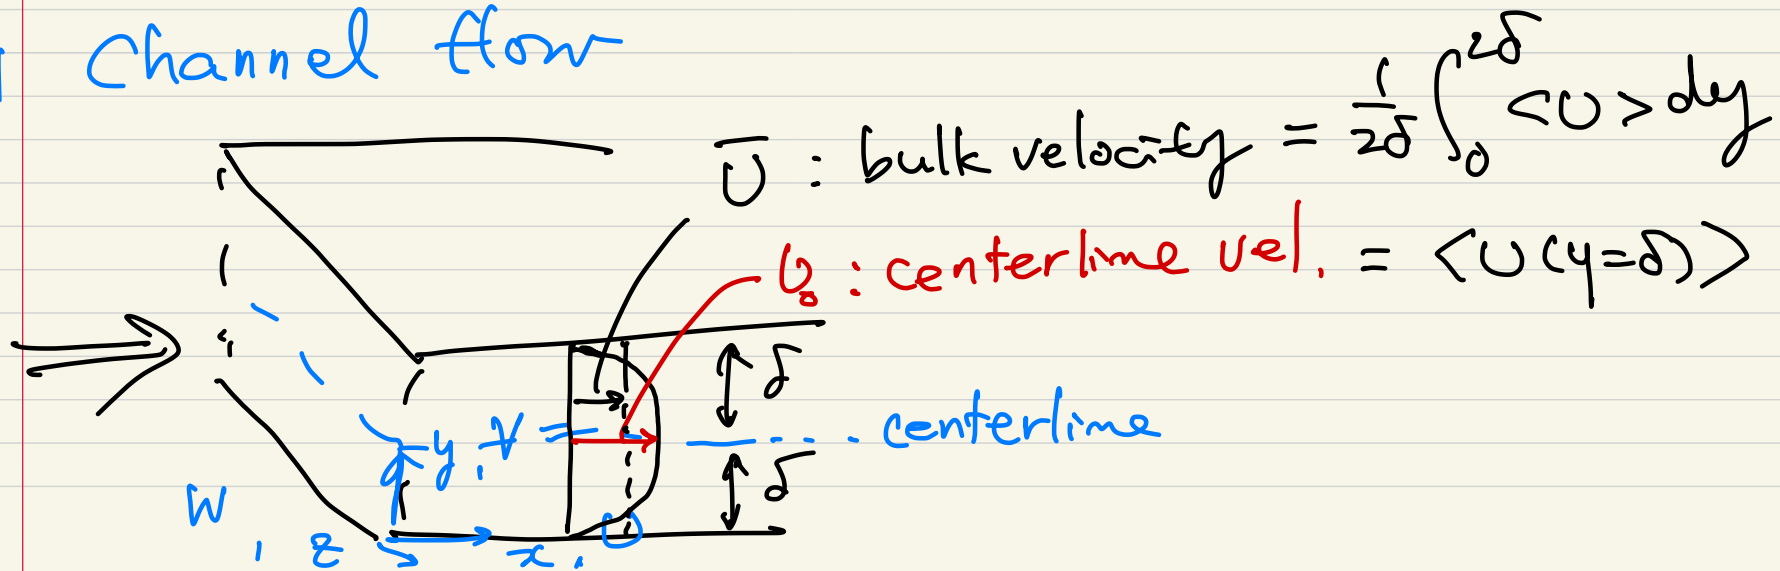 Channel flow
Ū : bulk velocity = 1/2δ ∫₀^2δ <U> dy
U₀ : centerline vel. = <U(y=δ)>
δ
y, V
centerline
δ
W, z
x, U